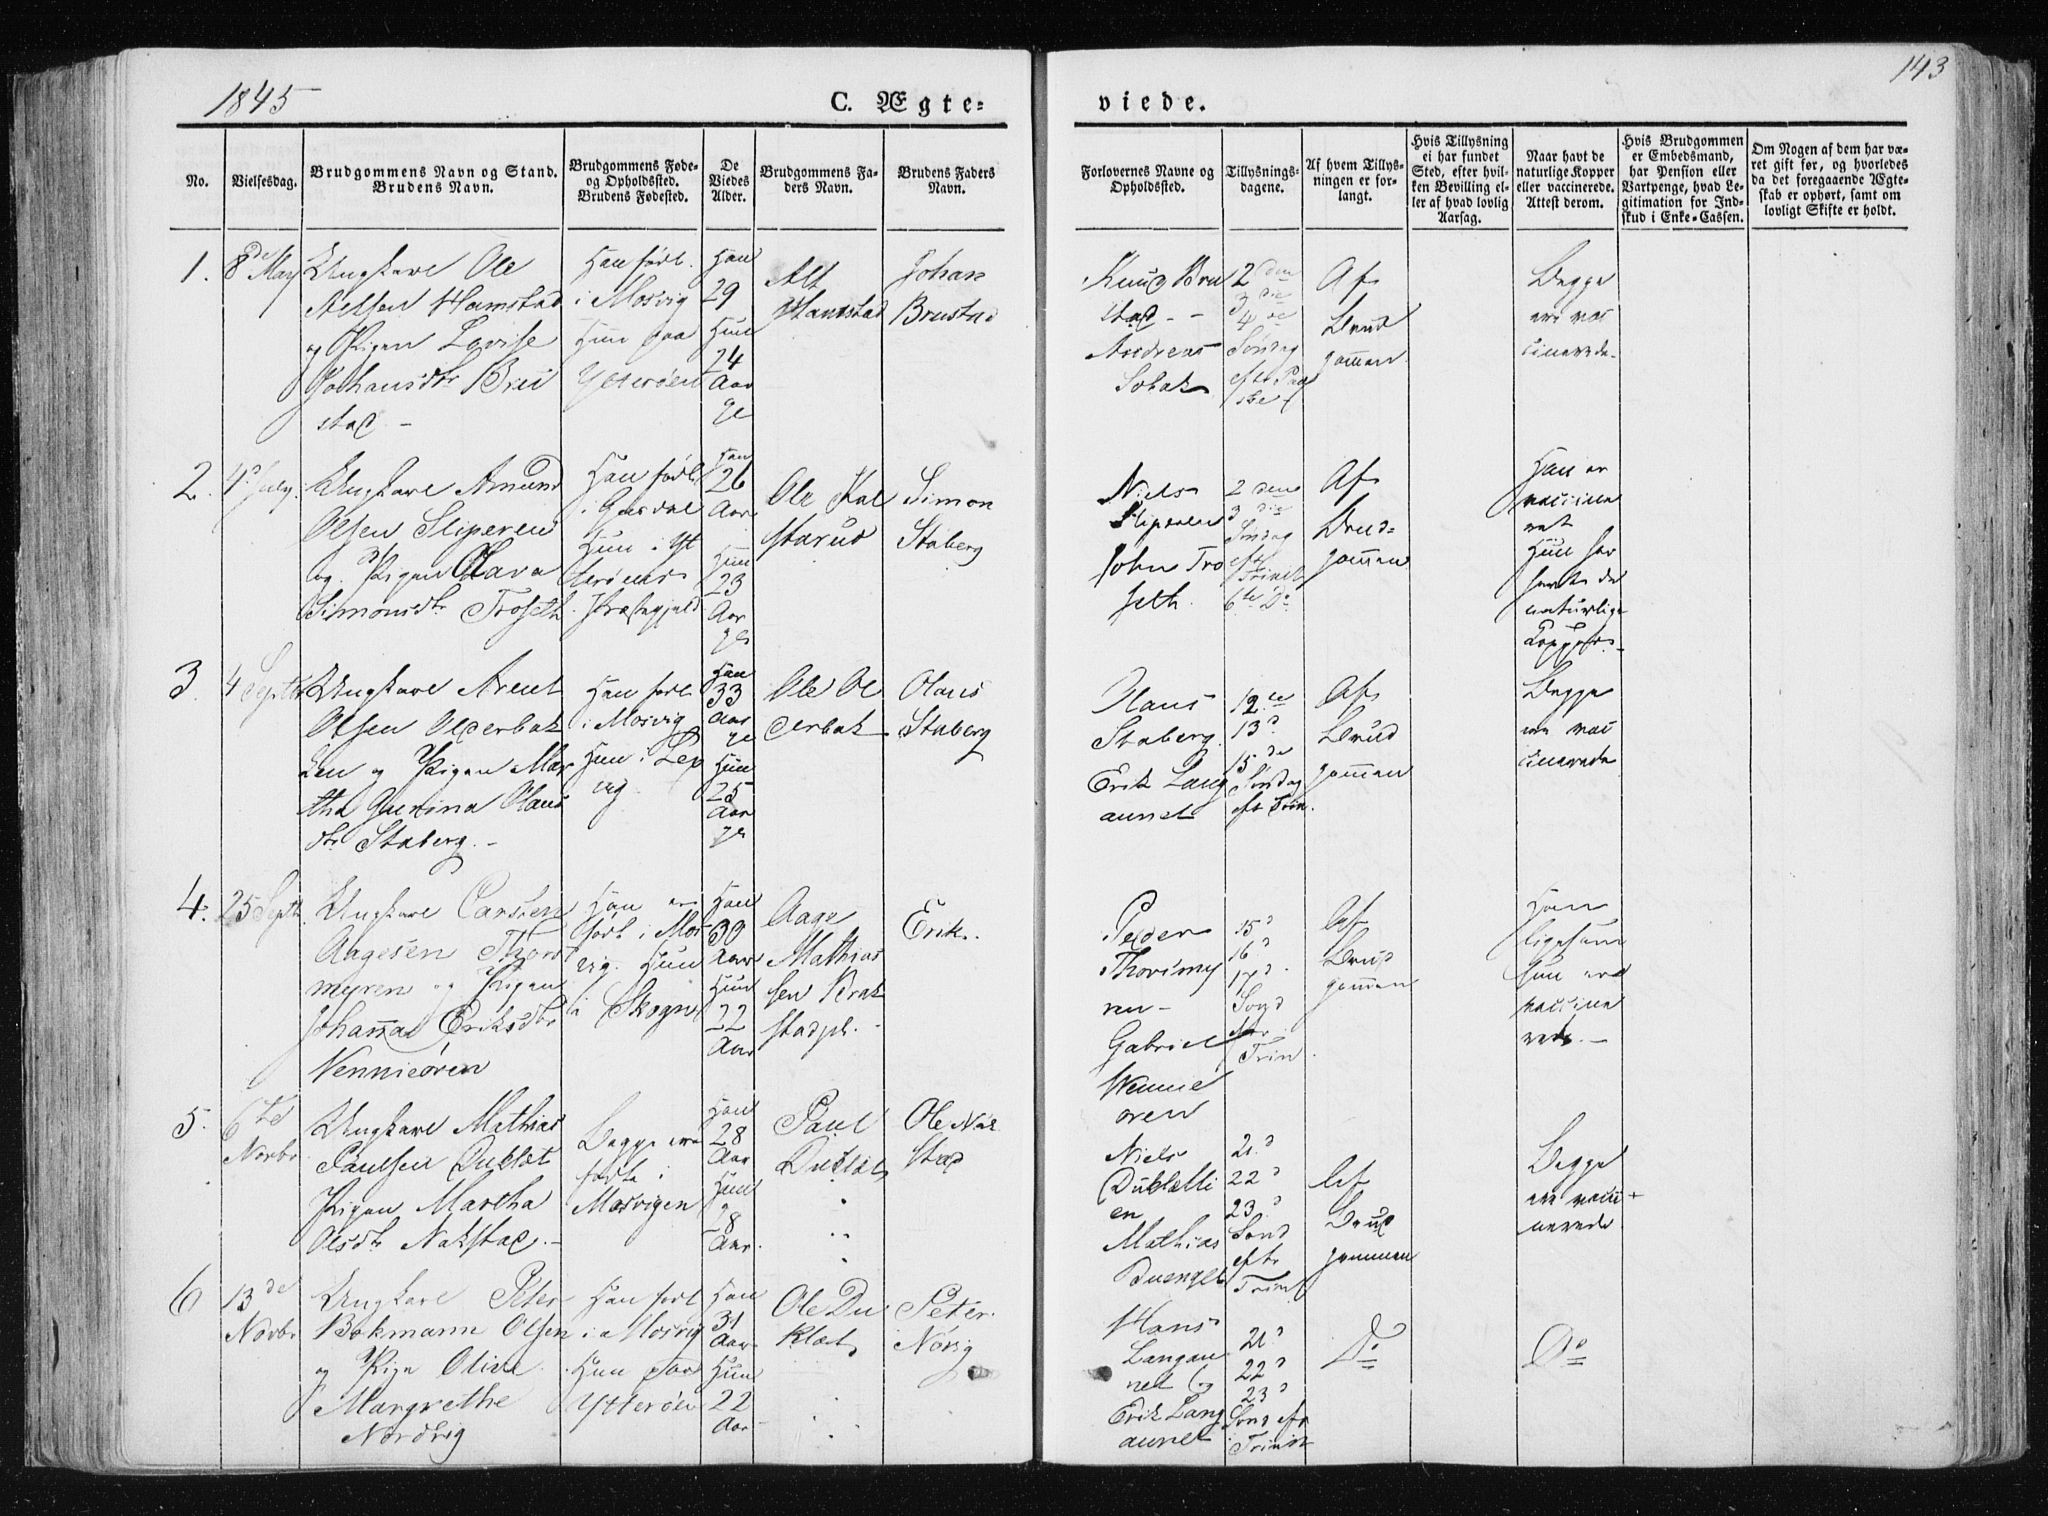 1845
C. Ægte-
viede.
143
No.
Vielsesdag.
Brudgommens Navn og Stand.
Brudens Navn.
Brudgommens Føde-
og Opholdsted.
Brudens Fødested.
De
Viedes
Alder.
Brudgommens Fa-
ders Navn.
Brudens Faders
Navn.
Forlovernes Navne og
Opholdsted.
Tillysnings-
dagene.
Af hvem Tillys-
ningen er for-
langt.
Hvis Tillysning
ei har fundet
Sted, efter hvil-
ken Bevilling el-
ler af hvad lovlig
Aarsag.
Naar havt de
naturlige Kopper
eller vaccinerede.
Attest derom.
Hvis Brudgommen
er Embedsmand,
har Pension eller
Vartpenge, hvad Le-
gitimation for Ind-
skud i Enke-Cassen.
Om Nogen af dem har væ-
ret gift før, og hvorledes
da det foregaaende Ægte-
skab er ophørt, samt om
lovligt Skifte er holdt.
1.
8de May
Ungkarl Ole
Aelsen Hamstad
og Pigen Lovise
Johansdtr Bru
stad -
Han født
i Mosvig
Hun paa
Ytterøen
Han
29
Hun
24
Aar
Hamstad
Johan
Brustad
Knud Bru
stad - -
Andreas
2den
3die
4de
Søndag
eft. Paa
ske
Af
Brud
gommen
Begge
ere vac
cinerede
2.
4d July
Ungkarl Amund
Olsen Sliperen
og Pigen Olava
Simonsdtr Troseth
Han født
i Gusdal
Hun i Yt
terøens
Præstegjeld
Han
26
Aar
Hun
23
Aar
Ole Kal
starud
Simon
Staberg
Niels
Sliperen
John Tro
seth.
2den
3die
Søndag
eft
Trinit
6te Do
Af
Brud-
gommen
Han er
vaccine
ret
Hun har
havt de
naturlige
Kopper
3
4 Septbr
Ungkarl Arent
Olsen Olderbak
ken og Pigen Mar
tha Gurina Olaus
dtr Staberg. -
Han født
i Mosvig
Hun i Lex
vig
Han
33
Aar
Hun
25
Aar
Ole Ol
derbak
Olaus
Staberg
Olaus
Staberg.
Erik Lang
aunet
12te
13d
15de
Søndag
eft Trin.
Af
Brud
gommen
Begge
ere vac
cinerede
4.
25 Septbr
Ungkarl Carsten
Aagesen Thors
myren og Pigen
Johanna Eriksdtr
Vennieøren
Han er
født i Mos
vig. Hun
i Skogn
Han
30
Aar
Hun
22
Aar
Aage
Mathias
sen Brak
stadpl.
Erik
Peder
Thorsmy
ren -
Gabriel
Wennie
øren
15d
16d
17d
Sønd
eftr
Trin
Af
Brud
gommen
Han
ligesom
hun ere
vaccine
rede. -
5.
6te
Novbr
Ungkarl Mathias
Paulsen Duklæt
Pigen Martha
Olsdtr Nakstad. -
Begge ere
fødte i
Mosvigen
Han
28
Aar
Hun
28
Aar.
Paul
Duklæt
Ole Nak
stad
Niels
Duklætti
en
Mathias
Duenget
21d
22d
23d
Sønd
eftr
Trinit
Af
Brud
gommen
Begge
ere vacci
nerede
6
13de
Novbr
Ungkarl Peter
Bokmann Olsen
og Pige Olive
Margrethe
Nordvig
Han født
i Mosvig
Hun paa
Ytterøen
Han
31
Aar
Hun
22
Aar
Ole Du
klæt
Peter
Norvig
Hans
Langau
net og
Erik Lang
aunet
21d
22d
23d
Sønd eft
Trinit
Do
Do